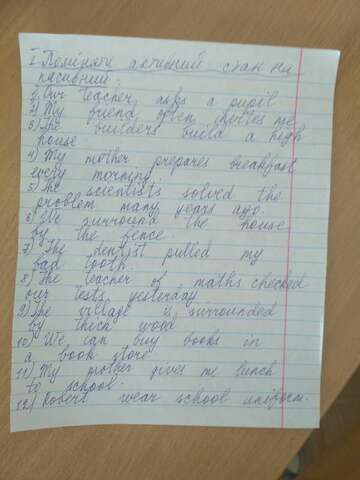 I Поміняти активний стан на
пасивний:
1) Our teacher asks a pupil.
2) My friend often invites me
3) The builders build a high
house.
4) My mother prepares breakfast
every morning.
5) The scientists solved the
problem many years ago.
6) We surround the house
by the fence.
7) The dentist pulled my
bad tooth.
8) The teacher of maths checked
our tests yesterday.
9) The village is surrounded
by thick wood
10) We can buy books in
a book store.
11) My mother gives me lunch
to school.
12) Robert wear school uniform.